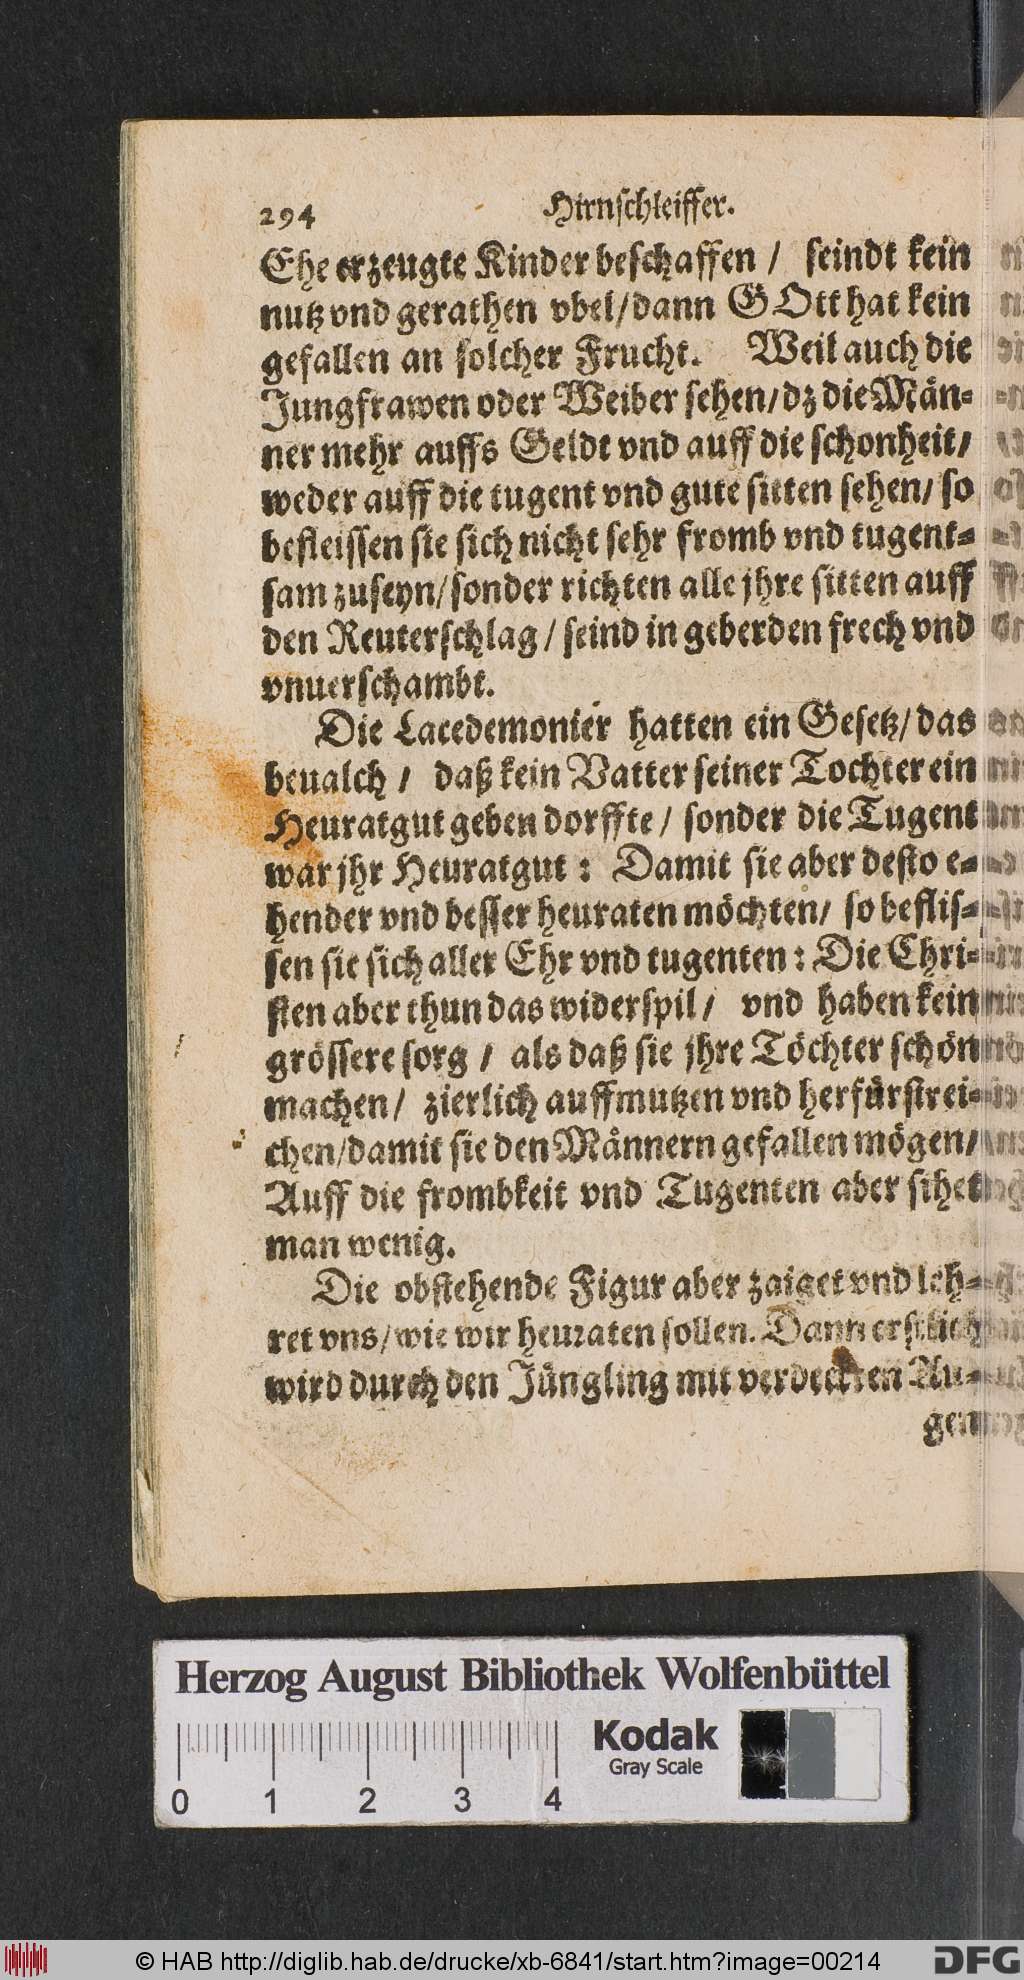 294 Hirnschleiffer.
Ehe erzeugte Kinder beschaffen / seindt kein
nutz vnd gerathen vbel/dann GOtt hat kein
gefallen an solcher Frucht. Weil auch die
Jungfrawen oder Weiber sehen/dz die Män-
ner mehr auffs Geldt vnd auff die schonheit/
weder auff die tugent vnd gute sitten sehen/ so
befleissen sie sich nicht sehr fromb vnd tugent-
sam zuseyn/sonder richten alle jhre sitten auff
den Reuterschlag / seind in geberden frech vnd
vnuerschambt.
Die Lacedemonier hatten ein Gesetz/ das
beualch / daß kein Vatter seiner Tochter ein
Heuratgut geben dorffte / sonder die Tugent
war jhr Heuratgut : Damit sie aber desto e-
hender vnd besser heuraten möchten/ so beflis-
sen sie sich aller Ehr vnd tugenten : Die Chri-
sten aber thun das widerspil / vnd haben kein
grössere sorg / als daß sie jhre Töchter schön
machen / zierlich auffmutzen vnd herfürstrei-
chen/damit sie den Männern gefallen mögen/
Auff die frombkeit vnd Tugenten aber sihet
man wenig.
Die obstehende Figur aber zaiget vnd leh-
ret vns/wie wir heuraten sollen. Dann erstlich
wird durch den Jüngling mit verdeckten Au-
gen
Herzog August Bibliothek Wolfenbüttel
Kodak
Gray Scale
0 1 2 3 4
© HAB http://diglib.hab.de/drucke/xb-6841/start.htm?image=00214
DFG